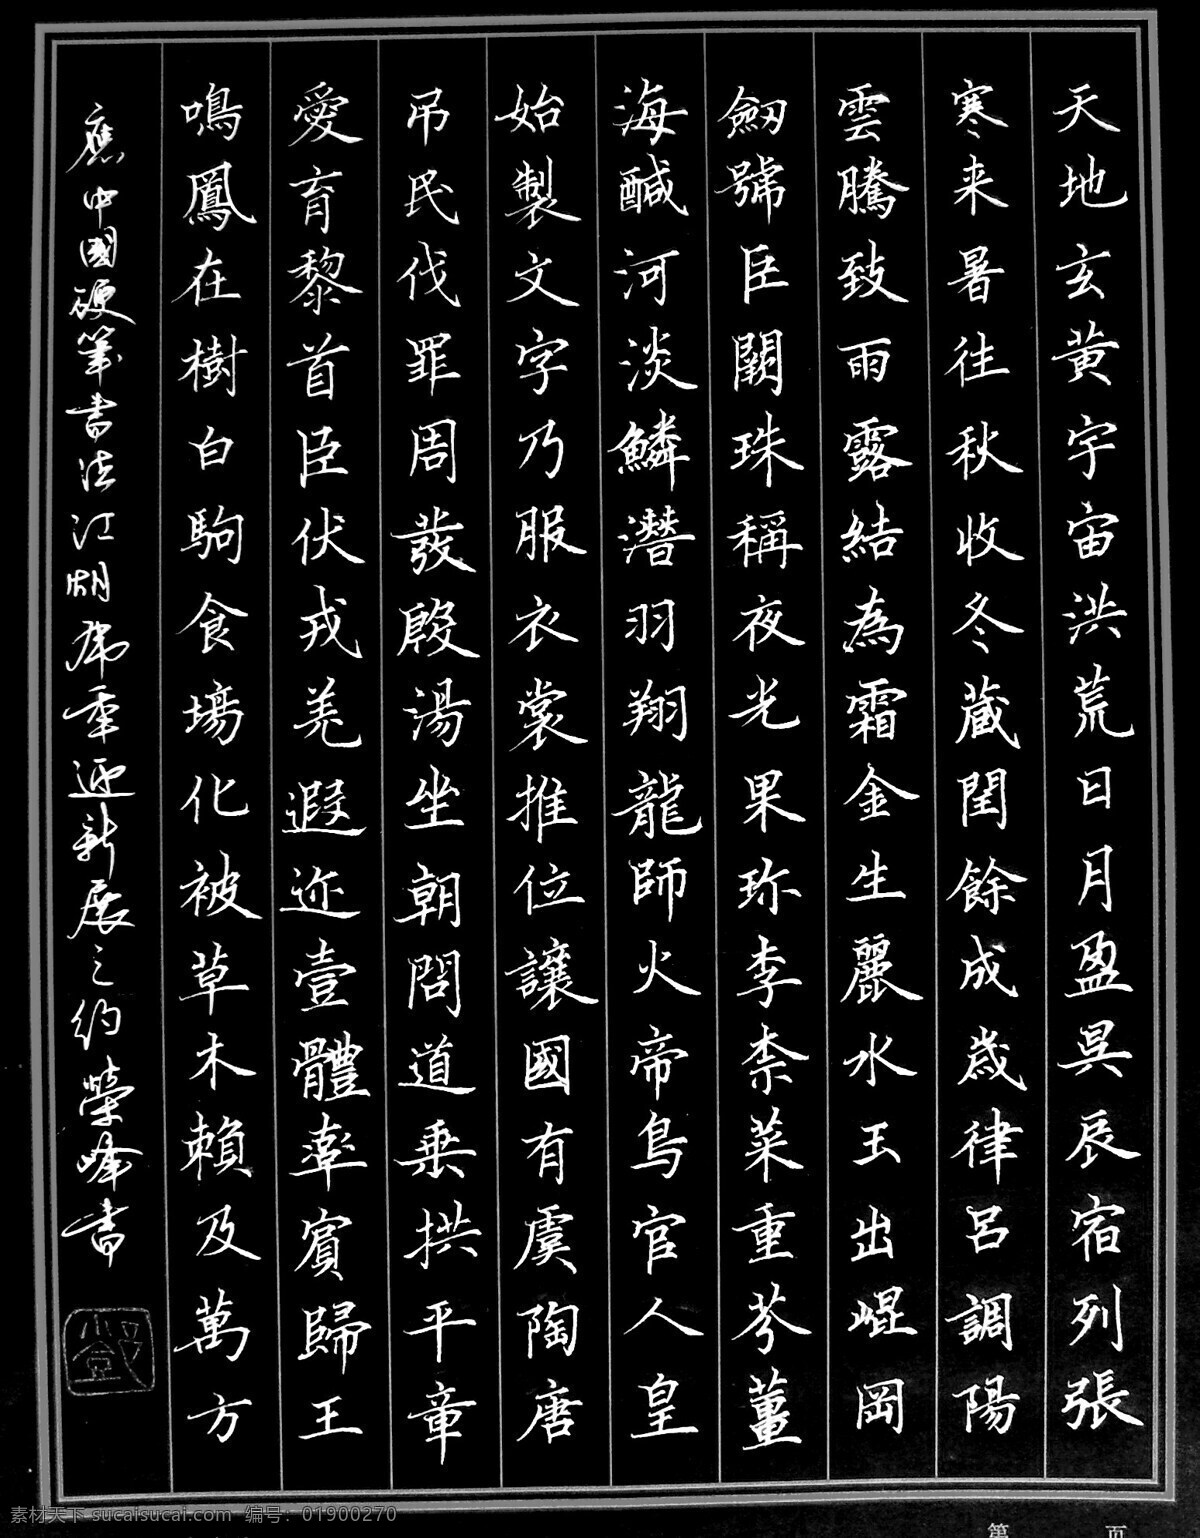 天地玄黃宇宙洪荒日月盈昃辰宿列張
寒来暑往秋收冬蔵閏餘成歲律呂調陽
雲騰致雨露結為霜金生麗水玉出崐岡
劒號臣闕珠稱夜光果珎李柰菜重芥薑
海醎河淡鱗潛羽翔龍師火帝鳥官人皇
始製文字乃服衣裳推位讓國有虞陶唐
吊民伐罪周發殷湯坐朝問道乗拱平章
愛育黎首臣伏戎羌遐迩壹體率賓歸王
鳴鳳在樹白駒食場化被草木賴及萬方
應中國硬筆書法江湖虎年迎新展之約榮峰書
素材天下 sucaisucai.com 编号：01900270
第 页